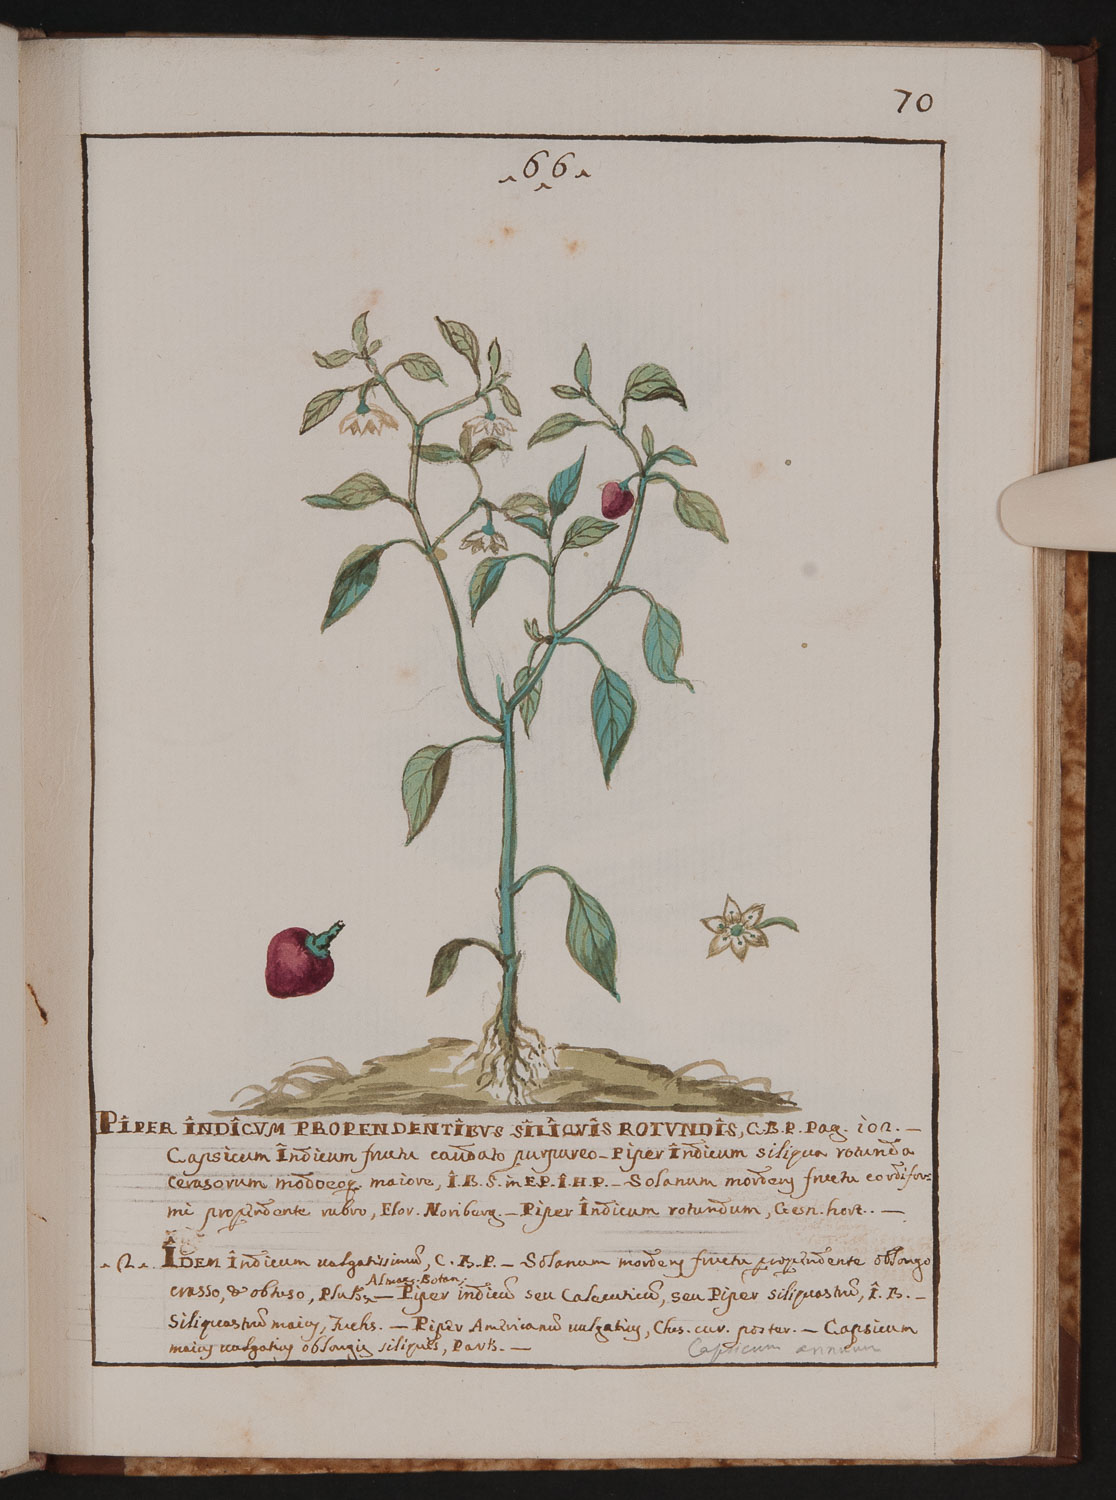 70
66
PIPER ÎNDÎCVM PROPENDENTÎBVS SÎLÎQVÎS ROTVNDÎS, C.B.P. Pag. 102. —
Capsicum Îndicum fructu caudato purpureo — Piper Îndicum siliqua rotunda
cerasorum modoeoq. maiore, Î.B.S. in E.P.Î.H.P. — Solanum mordens fructu cordifor-
mi propendente rubro, Flor. Noriburg. — Piper Îndicum rotundum, Gesn. hort. . —
. 2 . ÎDEM Îndicum vulgatissimũ, C.B.P. — Solanum mordens fructu propendente oblongo
Almag. Botan;
crasso, & obtuso, Pluk. — Piper indicũ seu Calecuticũ, seu Piper siliquastrũ, Î.B. —
Siliquastrũ maius, Fuchs. — Piper Americanũ vulgatius, Clus. cur. poster. — Capsicum
maius vulgatius oblongis siliquis, Park. —
Capsicum annuum